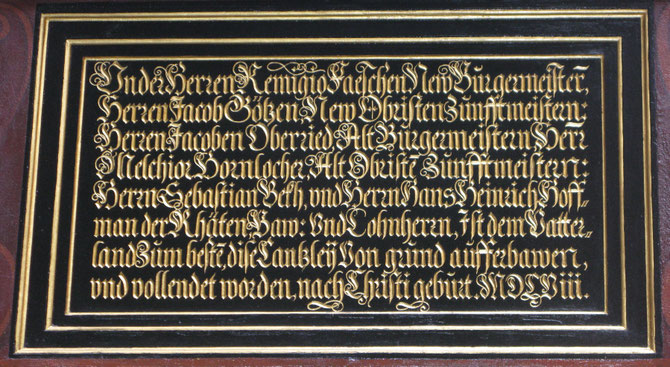 Under Herren Remigio Faeschen New Burgermeister,
Herren Jacob Götzen New Obristen Zunfftmeistern:
Herren Jacoben Oberried, Alt Burgermeistern Herr
Melchior Hornlocher, Alt Obristē Zunfftmeistern:
Herrn Sebastian Bekh, vnd Herrn Hans Heinrich Hoff-
man der Rhäten Baw: Vnd Lohnherrn, Ist dem Vatter-
land Zum bestē, dise Cantzleÿ Von grund aufferbawen,
vnd vollendet worden, nach Christi geburt. MDCVIII.